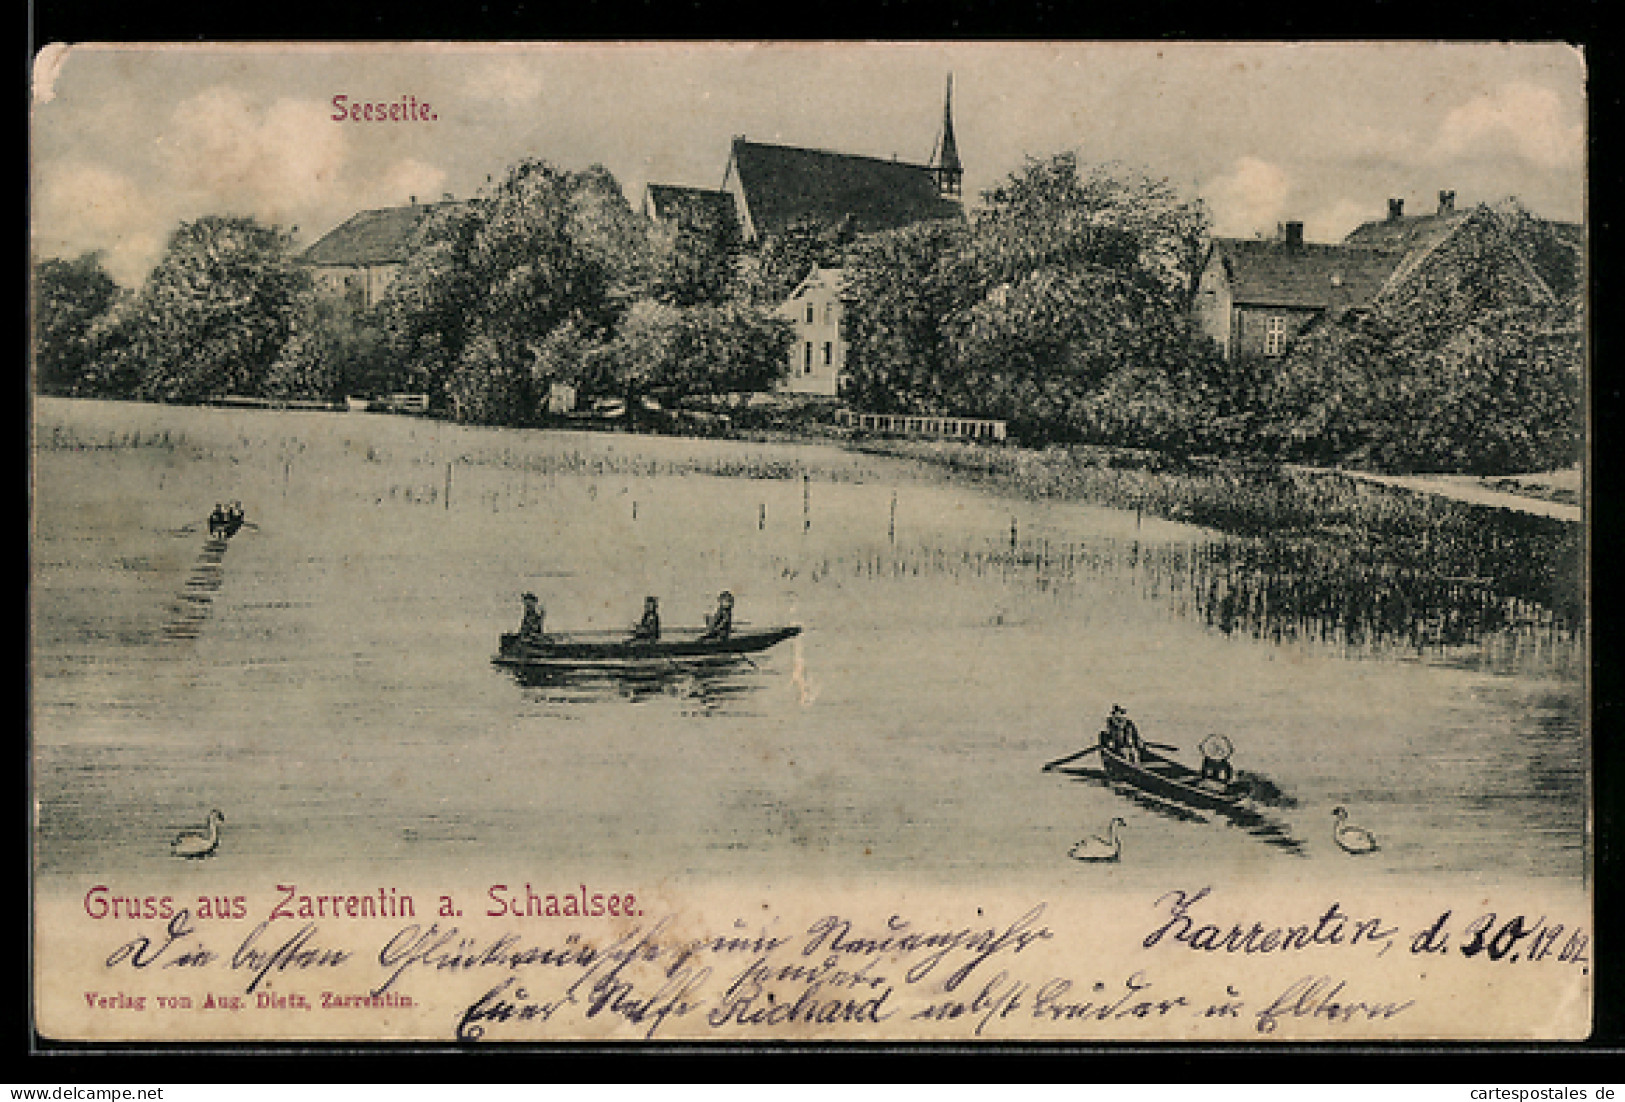 Seeseite.
Gruss aus Zarrentin a. Schaalsee.
Zarrentin, d. 30./12.02.
Die besten Glückwünsche zum Neuenjahr
sendet
Euer Neffe Richard nebst Brüder u. Eltern
Verlag von Aug. Dietz, Zarrentin.
cartespostales de